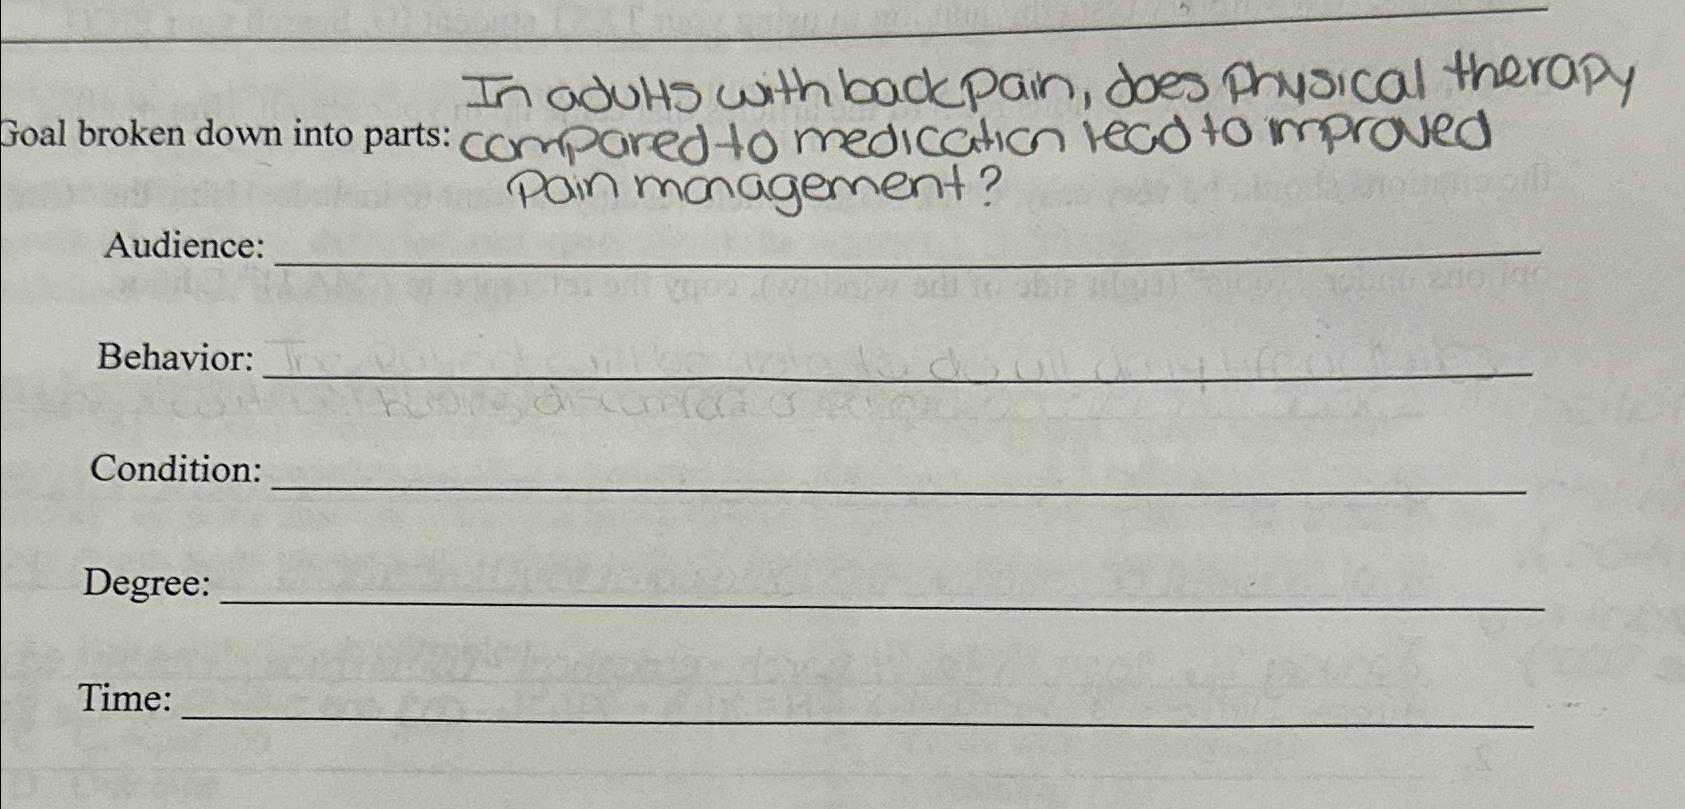 In adults with back pain, does physical therapy
Goal broken down into parts: compared to medication lead to improved
pain management?
Audience:
Behavior:
Condition:
Degree:
Time: